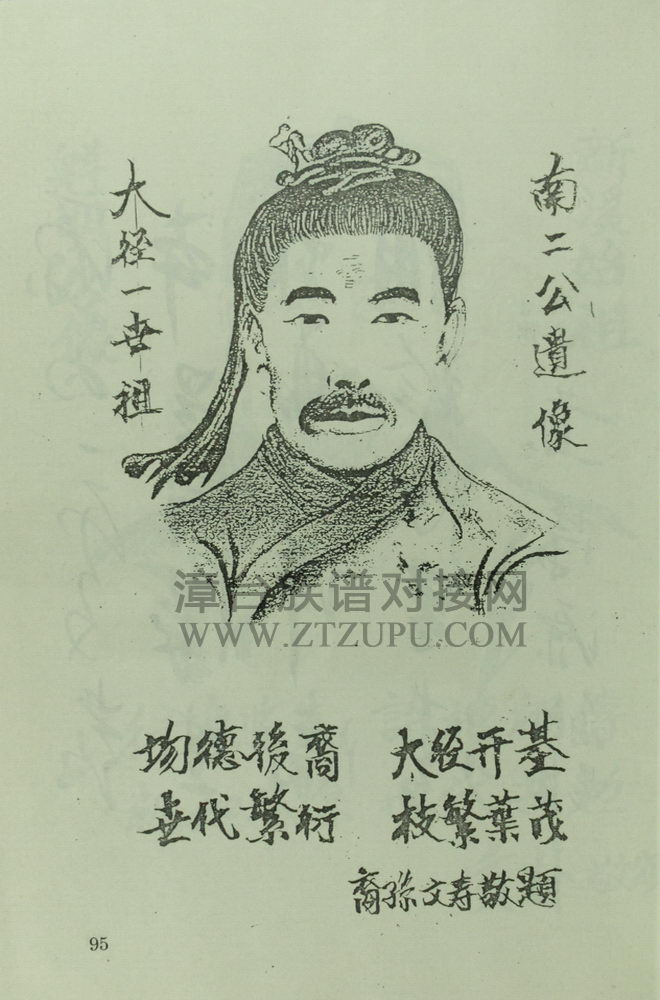 南二公遺像
大径一世祖
漳台族谱对接网
WWW.ZTZUPU.COM
均德後裔 大径开基
世代繁衍 枝繁葉茂
裔孫文寿敬題
95